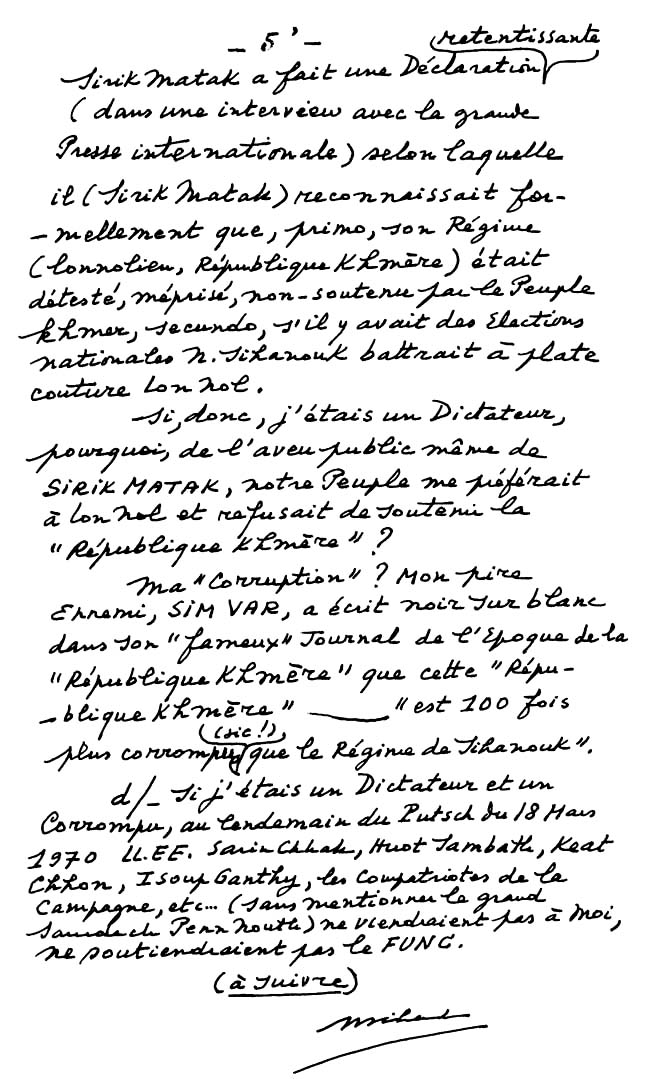 – 5' –
retentissante
Sirik Matak a fait une Déclaration
(dans une interview avec la grande
Presse internationale) selon laquelle
il (Sirik Matak) reconnaissait for-
-mellement que, primo, son Régime
(lonnolien, République Khmère) était
détesté, méprisé, non-soutenu par le Peuple
khmer, secundo, s'il y avait des Elections
nationales N. Sihanouk battrait à plate
couture Lon Nol.
Si, donc, j'étais un Dictateur,
pourquoi, de l'aveu public même de
SIRIK MATAK, notre Peuple me préférait
à Lon Nol et refusait de soutenir la
"République Khmère" ?
Ma "Corruption" ? Mon pire
Ennemi, SIM VAR, a écrit noir sur blanc
dans son "fameux" Journal de l'Epoque de la
"République Khmère" que cette "Répu-
-blique Khmère" ____ "est 100 fois
(sic !)
plus corrompu que le Régime de Sihanouk".
d/_ Si j'étais un Dictateur et un
Corrompu, au lendemain du Putsch du 18 Mars
1970 LL.EE. Sarin Chhak, Huot Sambath, Keat
Chhon, Isoup Ganthy, les Compatriotes de la
Campagne, etc... (sans mentionner le grand
Samdech Penn Nouth) ne viendraient pas à moi,
ne soutiendraient pas le FUNC.
(à suivre)